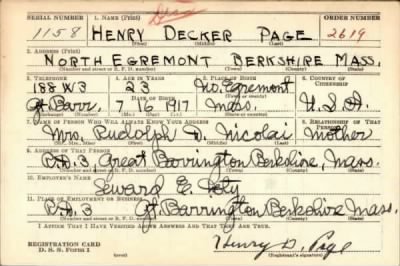 SERIAL NUMBER 1. NAME (Print) ORDER NUMBER
1158 HENRY DECKER PAGE 2619
(First) (Middle) (Last)
2. ADDRESS (Print)
NORTH EGREMONT BERKSHIRE MASS.
(Number and street or R. F. D. number) (Town) (County) (State)
3. TELEPHONE 4. AGE IN YEARS 5. PLACE OF BIRTH 6. COUNTRY OF CITIZENSHIP
188 W3 23 No. Egremont
DATE OF BIRTH
Gt Barr. 7 16 1917 Mass. U.S.A.
(Exchange) (Number) (Mo.) (Day) (Yr.) (Town or county) (State or country)
7. NAME OF PERSON WHO WILL ALWAYS KNOW YOUR ADDRESS 8. RELATIONSHIP OF THAT PERSON
Mrs. Rudolph D. Nicolai mother
(Mr., Mrs., Miss) (First) (Middle) (Last)
9. ADDRESS OF THAT PERSON
R.D. 3 Great Barrington Berkshire, Mass.
(Number and street or R. F. D. number) (Town) (County) (State)
10. EMPLOYER'S NAME
Seward E.
11. PLACE OF EMPLOYMENT OR BUSINESS
R.D. 3 Gt. Barrington Berkshire Mass.
(Number and street or R. F. D. number) (Town) (County) (State)
I AFFIRM THAT I HAVE VERIFIED ABOVE ANSWERS AND THAT THEY ARE TRUE.
REGISTRATION CARD
D. S. S. Form 1 Henry D. Page
(Registrant's signature)